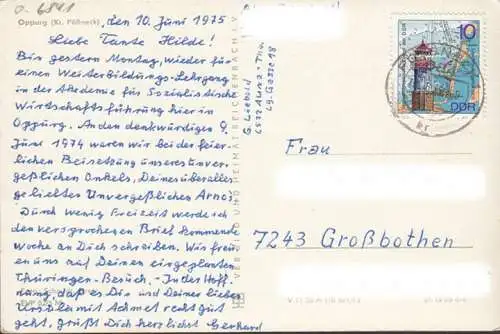 o-6841
Oppurg (Kr. Pößneck)
, den 10. Juni 1975
Liebe Tante Hilde!
Bin gestern, Montag, wieder für
einen Weiterbildungs-Lehrgang
in der Akademie für Sozialistische
Wirtschaftsführung hier in
Oppurg. An den denkwürdigen 9.
Juni 1974 waren wir bei der feier-
lichen Beisetzung unseres unver-
geßlichen Onkels, Deines überalles
geliebten Unvergeßlichen Arno's
Durch wenig Freizeit werde ich
den versprochenen Brief kommende
Woche an Dich schreiben. Wir freu-
en uns auf Deinen eingeplanten
Thüringen-Besuch. - In der Hoff-
nung, daß es Dir und Deiner lieben
Ursula mit Achmet recht gut
geht, grüßt Dich herzlichst Gerhard
VERLAG BILD UND HEIMAT REICHENBACH I. V.
G. Liebold
6532 Auma-Thür.
Lg. Gasse 18
10
DDR
Frau
7243 Großbothen